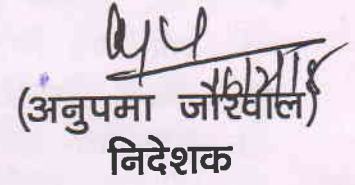 (अनुपमा जोरवाल)
निदेशक